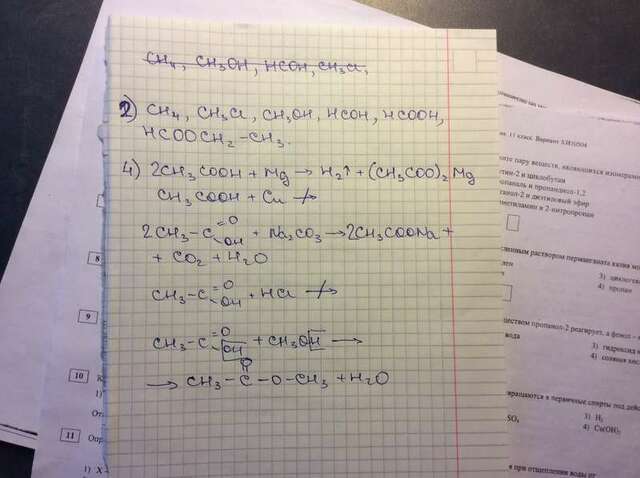 CH₄, CH₃OH, HCOH, CH₃Cl,
2) CH₄, CH₃Cl, CH₃OH, HCOH, HCOOH,
HCOOCH₂-CH₃.
4) 2CH₃COOH + Mg → H₂↑ + (CH₃COO)₂Mg
CH₃COOH + Cu ↛
2CH₃-C=O OH + Na₂CO₃ → 2CH₃COONa +
+ CO₂ + H₂O
CH₃-C=O OH + HCl ↛
CH₃-C=O OH + CH₃OH →
→ CH₃-C(=O)-O-CH₃ + H₂O
8
9
10
1)
11 Опр
1) X
11 класс. Вариант
те пару веществ, являющихся изомерами
тин-2 и циклобутан
паналь и пропандиол-1,2
танол-2 и диэтиловый эфир
метиламин и 2-нитропропан
3) циклогек
4) пропан
ществом пропанол-2 реагирует, а фенол –
вода
3) гидроксид
4) соляная
вращаются в первичные спирты под дей
SO₄
3) H₂
4) Cu(OH)₂
я при отщеплении воды от